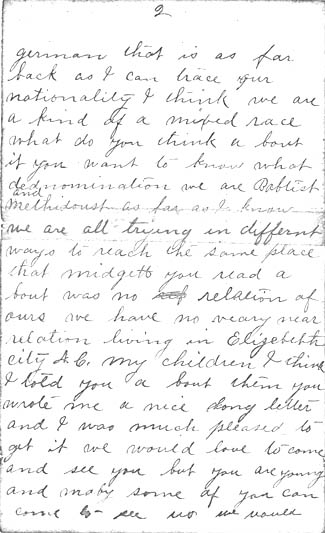 2
german that is as far
back as I can trace our
nationality I think we are
a kind of a mixed race
what do you think a bout
it you want to know what
dednomination we are Babtist
and
methidoust as far as I know
we are all trying in differnt
ways to reach the same place
that midgett you read a
bout was no relation of
ours we have no veary near
relation living in Elizebeth
city N.C. my children I think
I told you a bout them you
wrote me a nice long letter
and I was much pleased to
get it we would love to come
and see you but you are young
and maby some of you can
come to see us we would